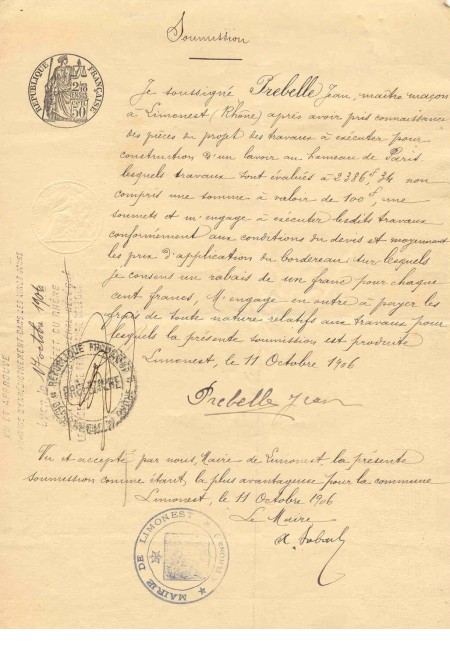 Soumission
RÉPUBLIQUE FRANÇAISE
50
Je soussigné Prebelle Jean, maître maçon
à Limonest (Rhône) après avoir pris connaissance
des pièces du projet des travaux à exécuter pour
construction d'un lavoir au hameau de Paris
lesquels travaux sont évalués à 2386f,34 non
compris une somme à valoir de 100f, me
soumets et m'engage à exécuter lesdits travaux
conformément aux conditions du devis et moyennant
les prix d'application du bordereau sur lesquels
je consens un rabais de un franc pour chaque
cent francs, M'engage en outre à payer les
frais de toute nature relatifs aux travaux pour
lesquels la présente soumission est produite
Limonest, le 11 Octobre 1906
Prebelle Jean
VU ET APPROUVÉ
1906
RÉPUBLIQUE FRANÇAISE
PRÉFECTURE
Vu et accepté par nous, Maire de Limonest, la présente
soumission comme étant la plus avantageuse pour la commune
Limonest, le 11 Octobre 1906
Le Maire
MAIRIE DE LIMONEST (RHÔNE)